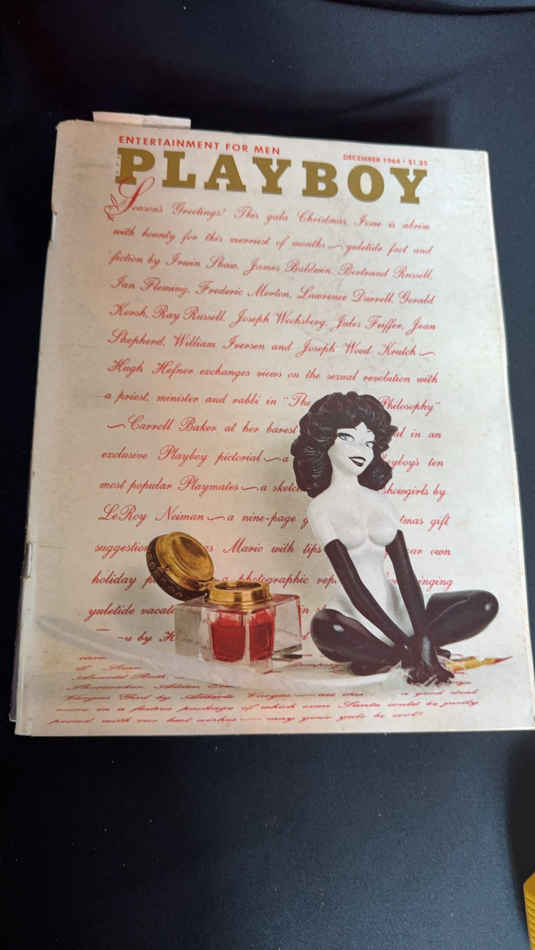 ENTERTAINMENT FOR MEN
DECEMBER 1964 • $1.25
PLAYBOY
Season's Greetings! This gala Christmas Issue is abrim
with bounty for this merriest of months — yuletide fact and
fiction by Irwin Shaw, James Baldwin, Bertrand Russell,
Ian Fleming, Frederic Morton, Lawrence Durrell, Gerald
Kersh, Ray Russell, Joseph Wechsberg, Jules Feiffer, Jean
Shepherd, William Iversen and Joseph Wood Krutch —
Hugh Hefner exchanges views on the sexual revolution with
a priest, minister and rabbi in "The Philosophy"
— Carroll Baker at her barest in an
exclusive Playboy pictorial — a ayboy's ten
most popular Playmates — a sketch showgirls by
LeRoy Neiman — a nine-page tmas gift
suggestion Mario with tips own
holiday photographic inging
yuletide
by
a good deal
in a festive package of which even Santa could be justly
proud with our best wishes may your yule be cool!